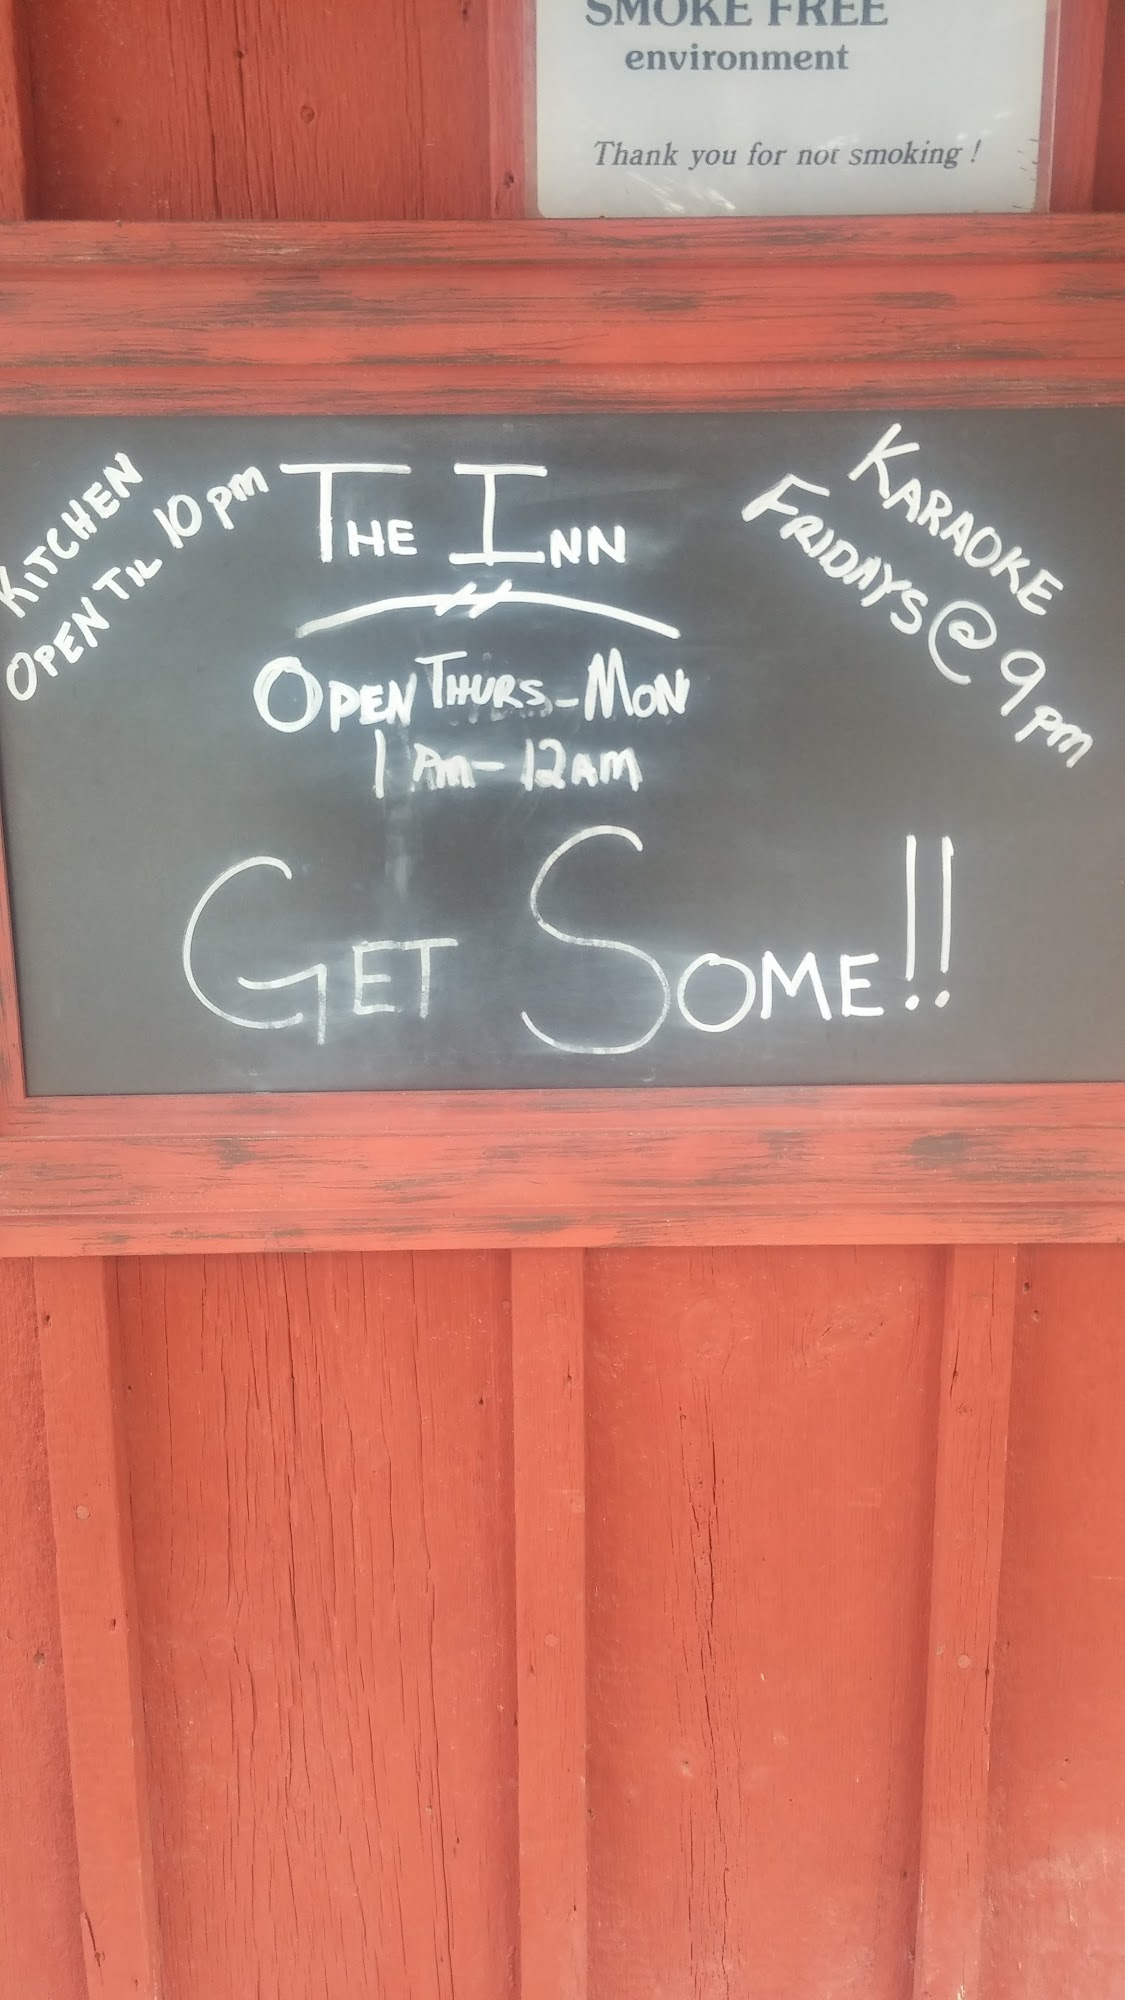 SMOKE FREE
environment
Thank you for not smoking !
KITCHEN
OPEN TIL 10pm
THE INN
KARAOKE
FRIDAYS @ 9pm
OPEN THURS-MON
1 PM-12AM
GET SOME!!